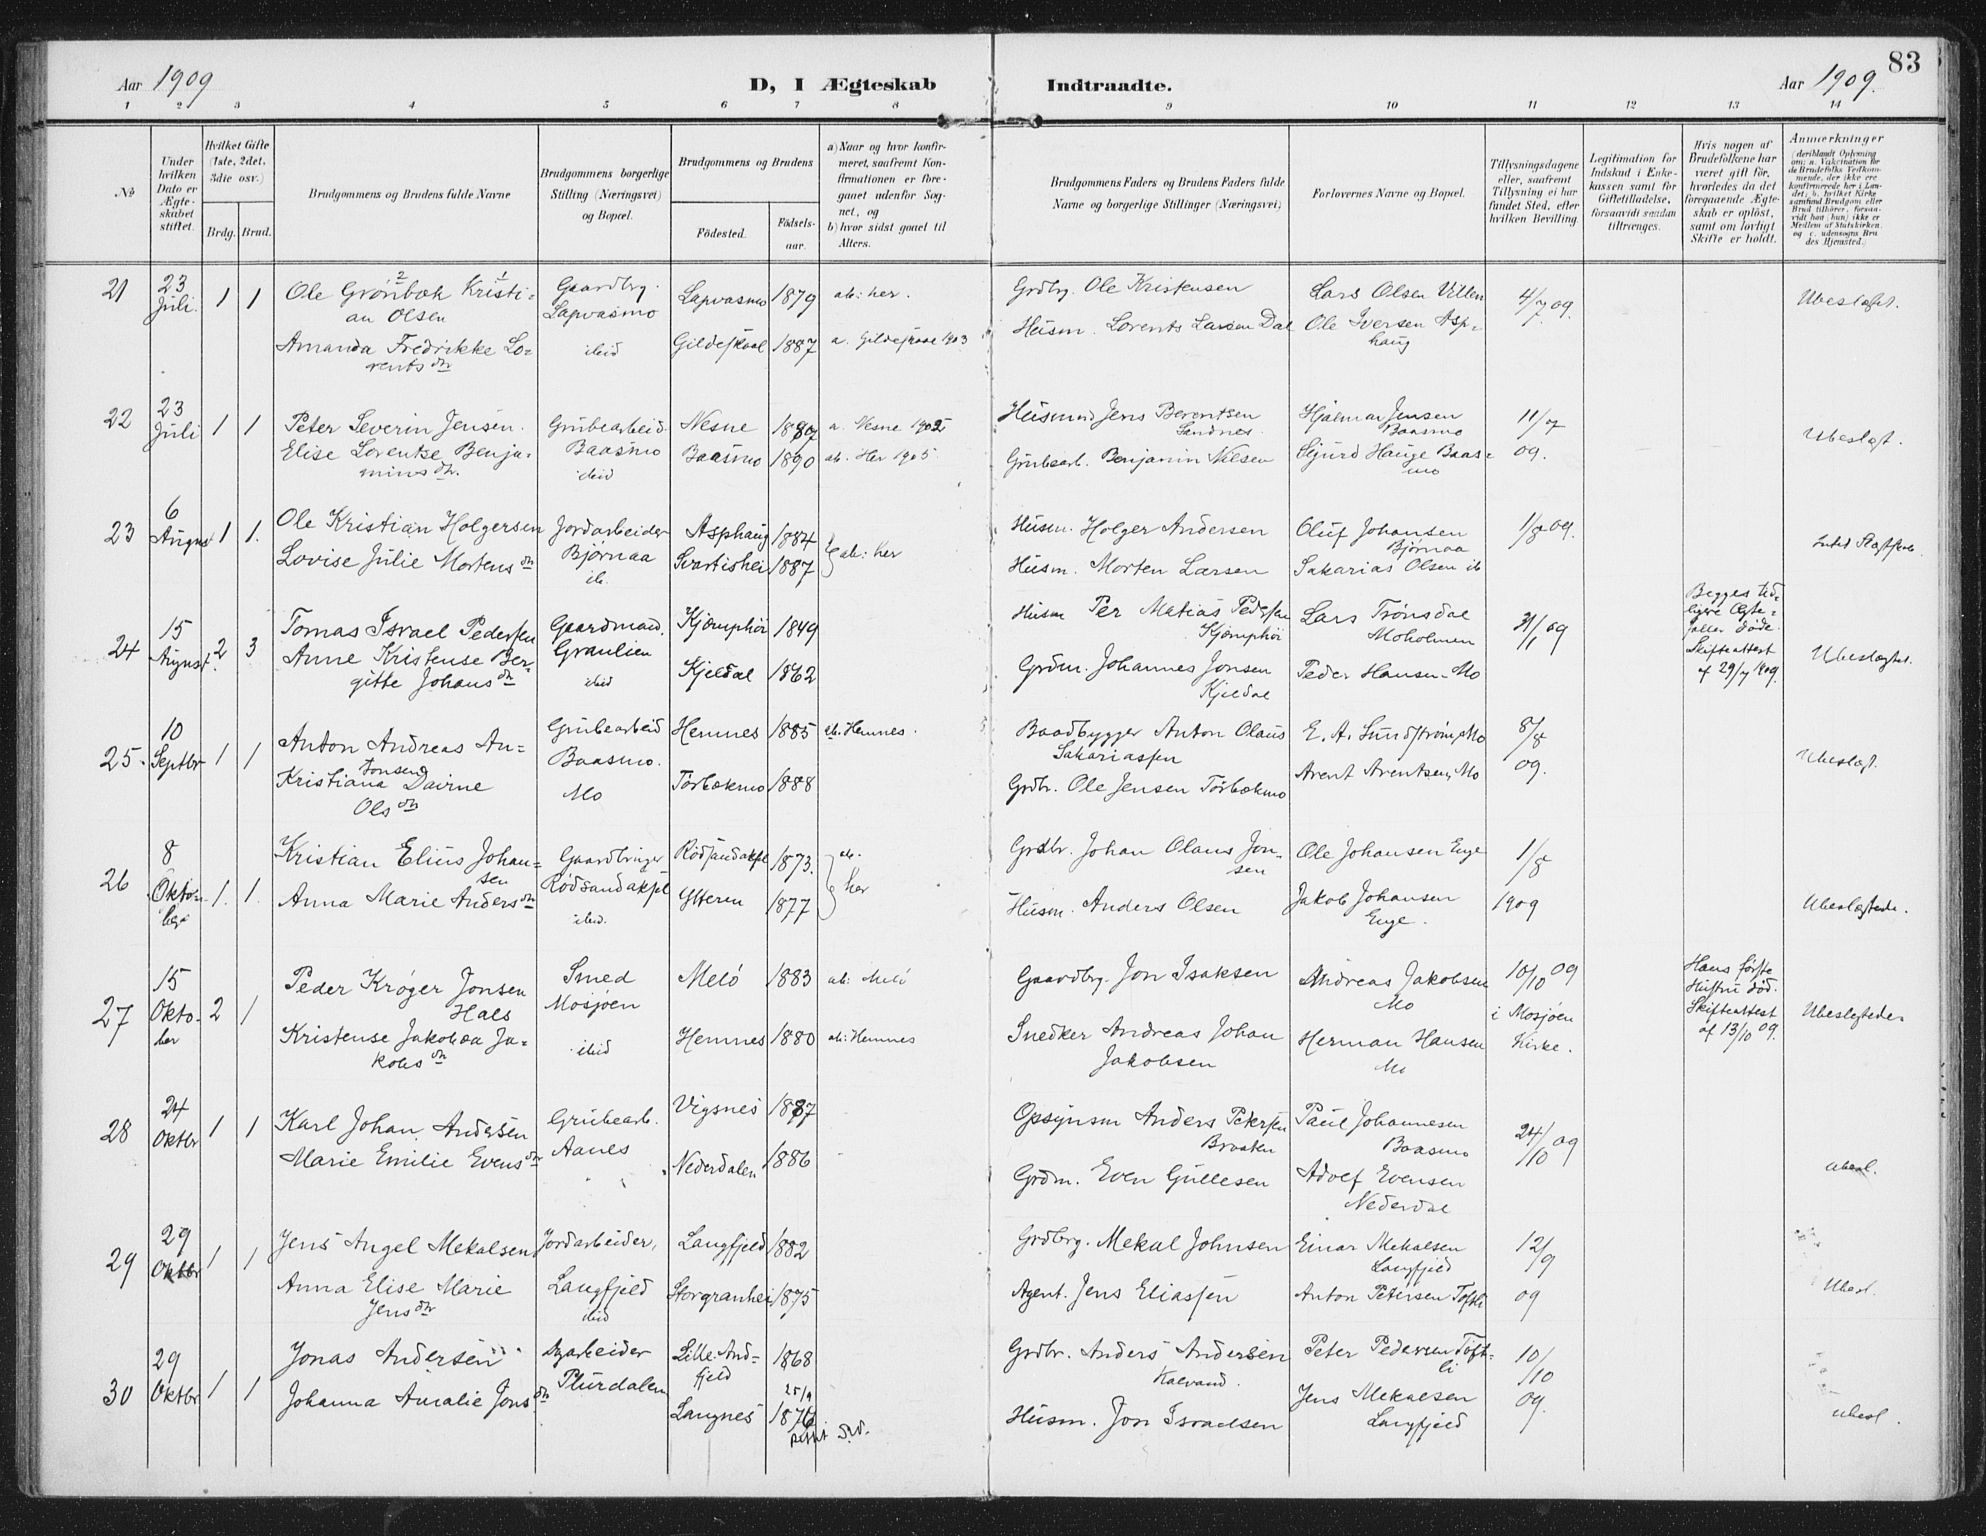 83
Aar 1909
D, I Ægteskab
Indtraadte.
Aar 1909.
1 2 3 4 5 6 7 8 9 10 11 12 13 14
No
Under hvilken Dato er Ægteskabet stiftet.
Hvilket Gifte (1ste, 2det, 3die osv.)
Brdg.
Brud.
Brudgommens og Brudens fulde Navne
Brudgommens borgerlige Stilling (Næringsvei) og Bopæl.
Brudgommens og Brudens
Födested.
Födselsaar.
a) Naar og hvor konfirmeret, saafremt Konfirmationen er foregaaet udenfor Sognet, og
b) hvor sidst gaaet til Alters.
Brudgommens Faders og Brudens Faders fulde Navne og borgerlige Stillinger (Næringsvei)
Forlovernes Navne og Bopæl.
Tillysningsdagene eller, saafremt Tillysning ei har fundet Sted, efter hvilken Bevilling.
Legitimation for Indskud i Enkekassen samt for Giftetilladelse, forsaavidt saadan tiltrænges.
Hvis nogen af Brudefolkene har været gift för, hvorledes da det foregaaende Ægteskab er oplöst, samt om lovligt Skifte er holdt.
Anmærkninger
21 23 Juli. 1 1
Ole Grönbæk Kristi-
an Olsen
Gaardbrg. Lapvasmo
Lapvasmo 1879 ab: her.
Grdbrg. Ole Kristensen
Lars Olsen Villen
4/7 09.
Ubeslægt.
Amanda Fredrikke Lo-
rents dtr
ibid
Gildeskaal 1887
Husm. Lorents Larsen Dal
Ole Iversen Asp-
haug
22 23 Juli 1 1
Peter Severin Jensen.
Grubearbeid. Baasmo
Nesne 1887 a. Nesne 1902
Husmd Jens Berentsen
Sandnes.
Hjalmar Jensen
Baasmo
11/7 09.
Ubeslægt.
Elise Lorentse Benja-
mins dtr.
ibid
Baasmo 1890 ab. Her 1905.
Grubearb. Benjamin Nilsen
Sigurd Hauge Baas-
mo
23 6 August 1 1.
Ole Kristian Holgersen
Jordarbeider Bjørnaa
Asphaug 1884 ab: her
Husm. Holger Andersen
Oluf Johansen
Bjørnaa
1/8 09.
Lovise Julie Mortens dtr
ib.
Svartishei 1887
Husm. Morten Larsen
Sakarias Olsen ib
24 15 August. 2 3
Tomas Israel Pedersen
Gaardmand. Graulien
Kjæmphöi 1849
Husm Per Matias Pedersen
Kjæmphöi
Lars Trönsdal
Moholmen
Begges tid-
ligere Ægte-
fæller døde.
Skifteattest
af 29/7 1909.
Ubeslægtet.
Anne Kristense Ber-
gitte Johans dtr
ibid
Kjeldal 1862
Grdm. Johannes Jonsen
Kjeldal
Peder Hansen - Mo
25. 10 Septbr 1 1
Anton Andreas An-
tonsen
Grubearbeid Baasmo.
Hemnes 1885 ab. Hemnes.
Baadbygger Anton Olaus
Sakariassen
E. A. Sundström, Mo
8/8 09.
Ubeslægt.
Kristiana Davine
Ols dtr
Mo
Tørbækmo 1888
Grdbr. Ole Jensen Tørbækmo
Arent Arentsen, Mo
26 8 Oktober 1. 1.
Kristian Elius Johan-
sen
Gaardbruger Rödsandakpl
Rödsandakpl 1873. ab. her
Grdbr. Johan Olaus Jon-
sen
Ole Johansen Enge
1/8 1909
Ubeslægtede.
Anna Marie Anders dtr
ibid.
Ytteren 1877
Husm. Anders Olsen
Jakob Johansen
Enge.
27 15 Oktober 2 1
Peder Kröger Jonsen
Hals
Smed Mosjøen
Melö 1883 ab: Melö
Gaardbrg. Jon Isaksen
Andreas Jakobsen
Mo
10/10 09
i Mosjøen
Kirke.
Hans første
Hustru død.
Skifteattest
af 13/10 09.
Ubeslegtede
Kristense Jakobea Ja-
kobs dtr
ibid
Hemnes 1880 ab: Hemnes
Snedker Andreas Johan
Jakobsen
Herman Hansen
Mo
28 24 Oktbr 1 1
Karl Johan Andersen
Grubearb. Aanes
Vigsnes 1887
Opsynsm Anders Petersen
Braaten
Paul Johannesen
Baasmo
24/10 09
ubesl.
Marie Emilie Evens dtr
Nederdalen 1886
Grdm. Even Gullesen
Adolf Evensen
Nederdal
29 29 Oktbr 1 1
Jens Angel Mekalsen
Jordarbeider, Langfjeld
Langfjeld 1882
Grdbrg. Mekal Johnsen
Einar Mekalsen
Langfjeld
12/9 09
Ubesl.
Anna Elise Marie
Jens dtr
ibid
Storgranhei 1875
Agent. Jens Eliassen
Anton Petersen Töftli
30 29 Oktbr 1 1
Jonas Andersen
Plurdalen
Lille And-
fjeld 1868
Grdbr. Anders Andersen
Kalvand.
Peter Pedersen Töft-
li
10/10 09.
ubesl.
Johanna Amalie Jons dtr
Langnes 25/9 1876
Husm. Jon Israelsen
Jens Mekalsen
Langfjeld